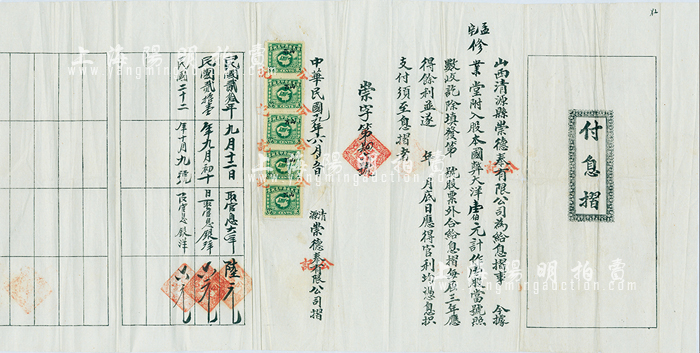 付息摺
山西清源縣崇德泰有限公司為給息摺事 今據
孟宅修
業堂附入股本國幣大洋壹佰元計作 股當號照
數收訖除填發第 號股票外合給息摺每屆三年應
得餘利並逐年 月底日應得官利均憑息摺
支付須至息摺者
崇字第 號
中華民國九年八月 日
清源 崇德泰有限公司摺
民國貳拾年 九月十二日 取官息大洋 陸元
民國貳拾壹年九月初十日取官息銀洋六元
民國二十二年十月九號 官息銀洋六元
上海陽明拍賣
www.yangmingauction.com